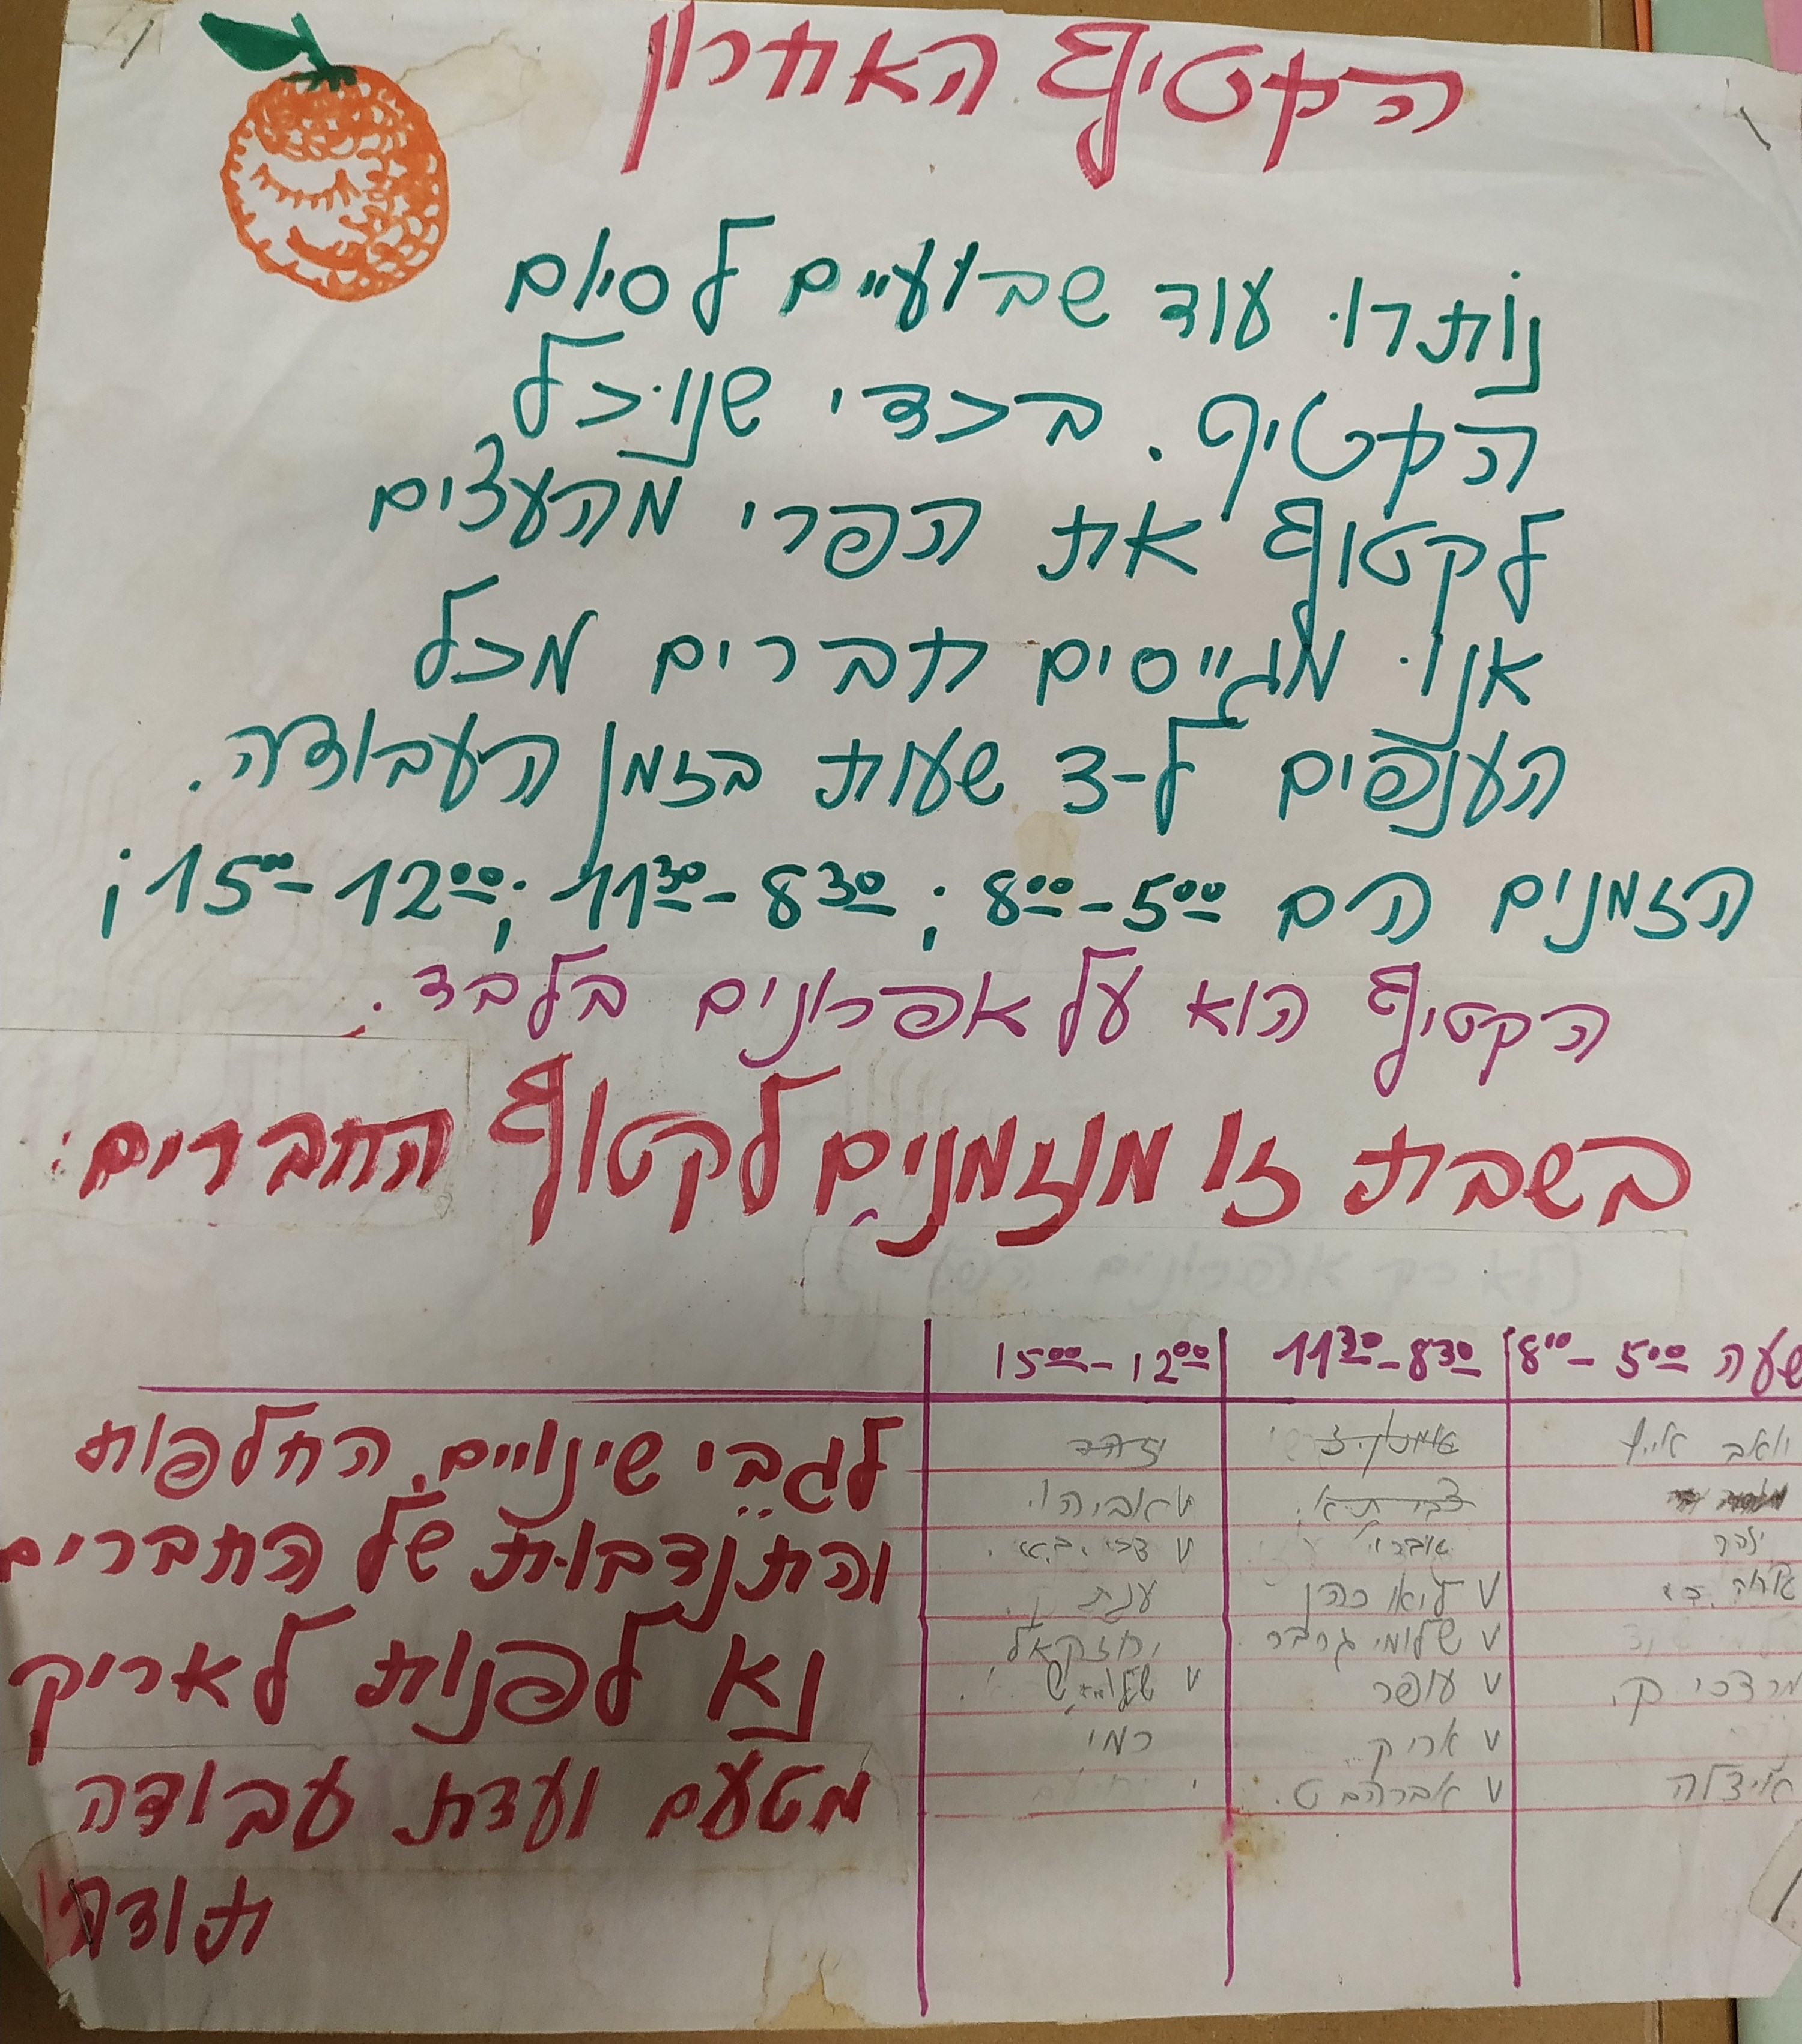 הקטיף האחרון
נותרו עוד שבועיים לסיום
הקטיף. בכדי שנוכל
לקטוף את הפרי מהעצים
אנו מגייסים חברים מכל
הענפים ל-3 שעות בזמן העבודה.
הזמנים הם 5⁰⁰-8⁰⁰; 8³⁰-11³⁰; 12⁰⁰-15⁰⁰;
הקטיף הוא על אפרונים בלבד.
בשבת זו מוזמנים לקטוף החברים:
(לא רק אפרונים
שעה 5⁰⁰-8⁰⁰ 8³⁰-11³⁰ 12⁰⁰-15⁰⁰
יואב
אביהו. v
ענת
v ליאו כהן
v שלומי גרבר יחזקאל
מרדכי ק. v עופר v
v אריק רמי
איצלה v אברהם ט.
לגבי שינויים, החלפות
והתנדבות של החברים
נא לפנות לאריק
מטעם ועדת עבודה
תודה!